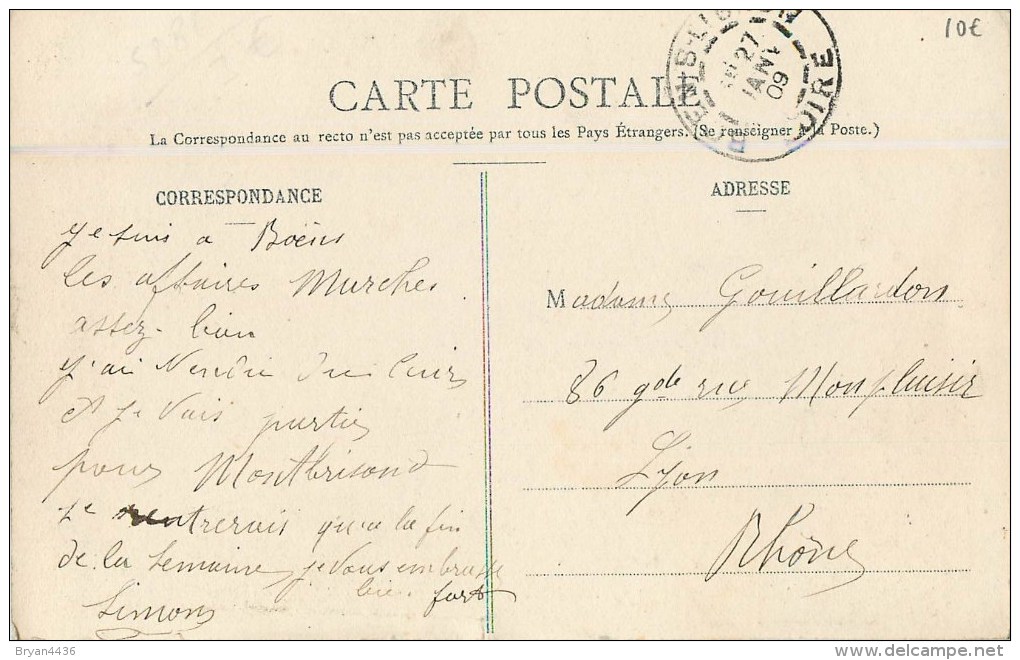 10€
BOEN-S-LIGNON
27
JANV
09
LOIRE
CARTE POSTALE
La Correspondance au recto n'est pas acceptée par tous les Pays Étrangers. (Se renseigner à la Poste.)
CORRESPONDANCE
je suis a Boëns
les affaires Marches
assez bien
j'ai Vendu du cuirs
et je Vais partir
pour Montbrisond
je rentrerais qu'a la fin
de la Semaine, je Vous embrasse
bien fort
Simons
ADRESSE
Madame Gouillardon
86 gde rue Monplaisir
Lyon
Rhône
Bryan4436
www.delcampe.net